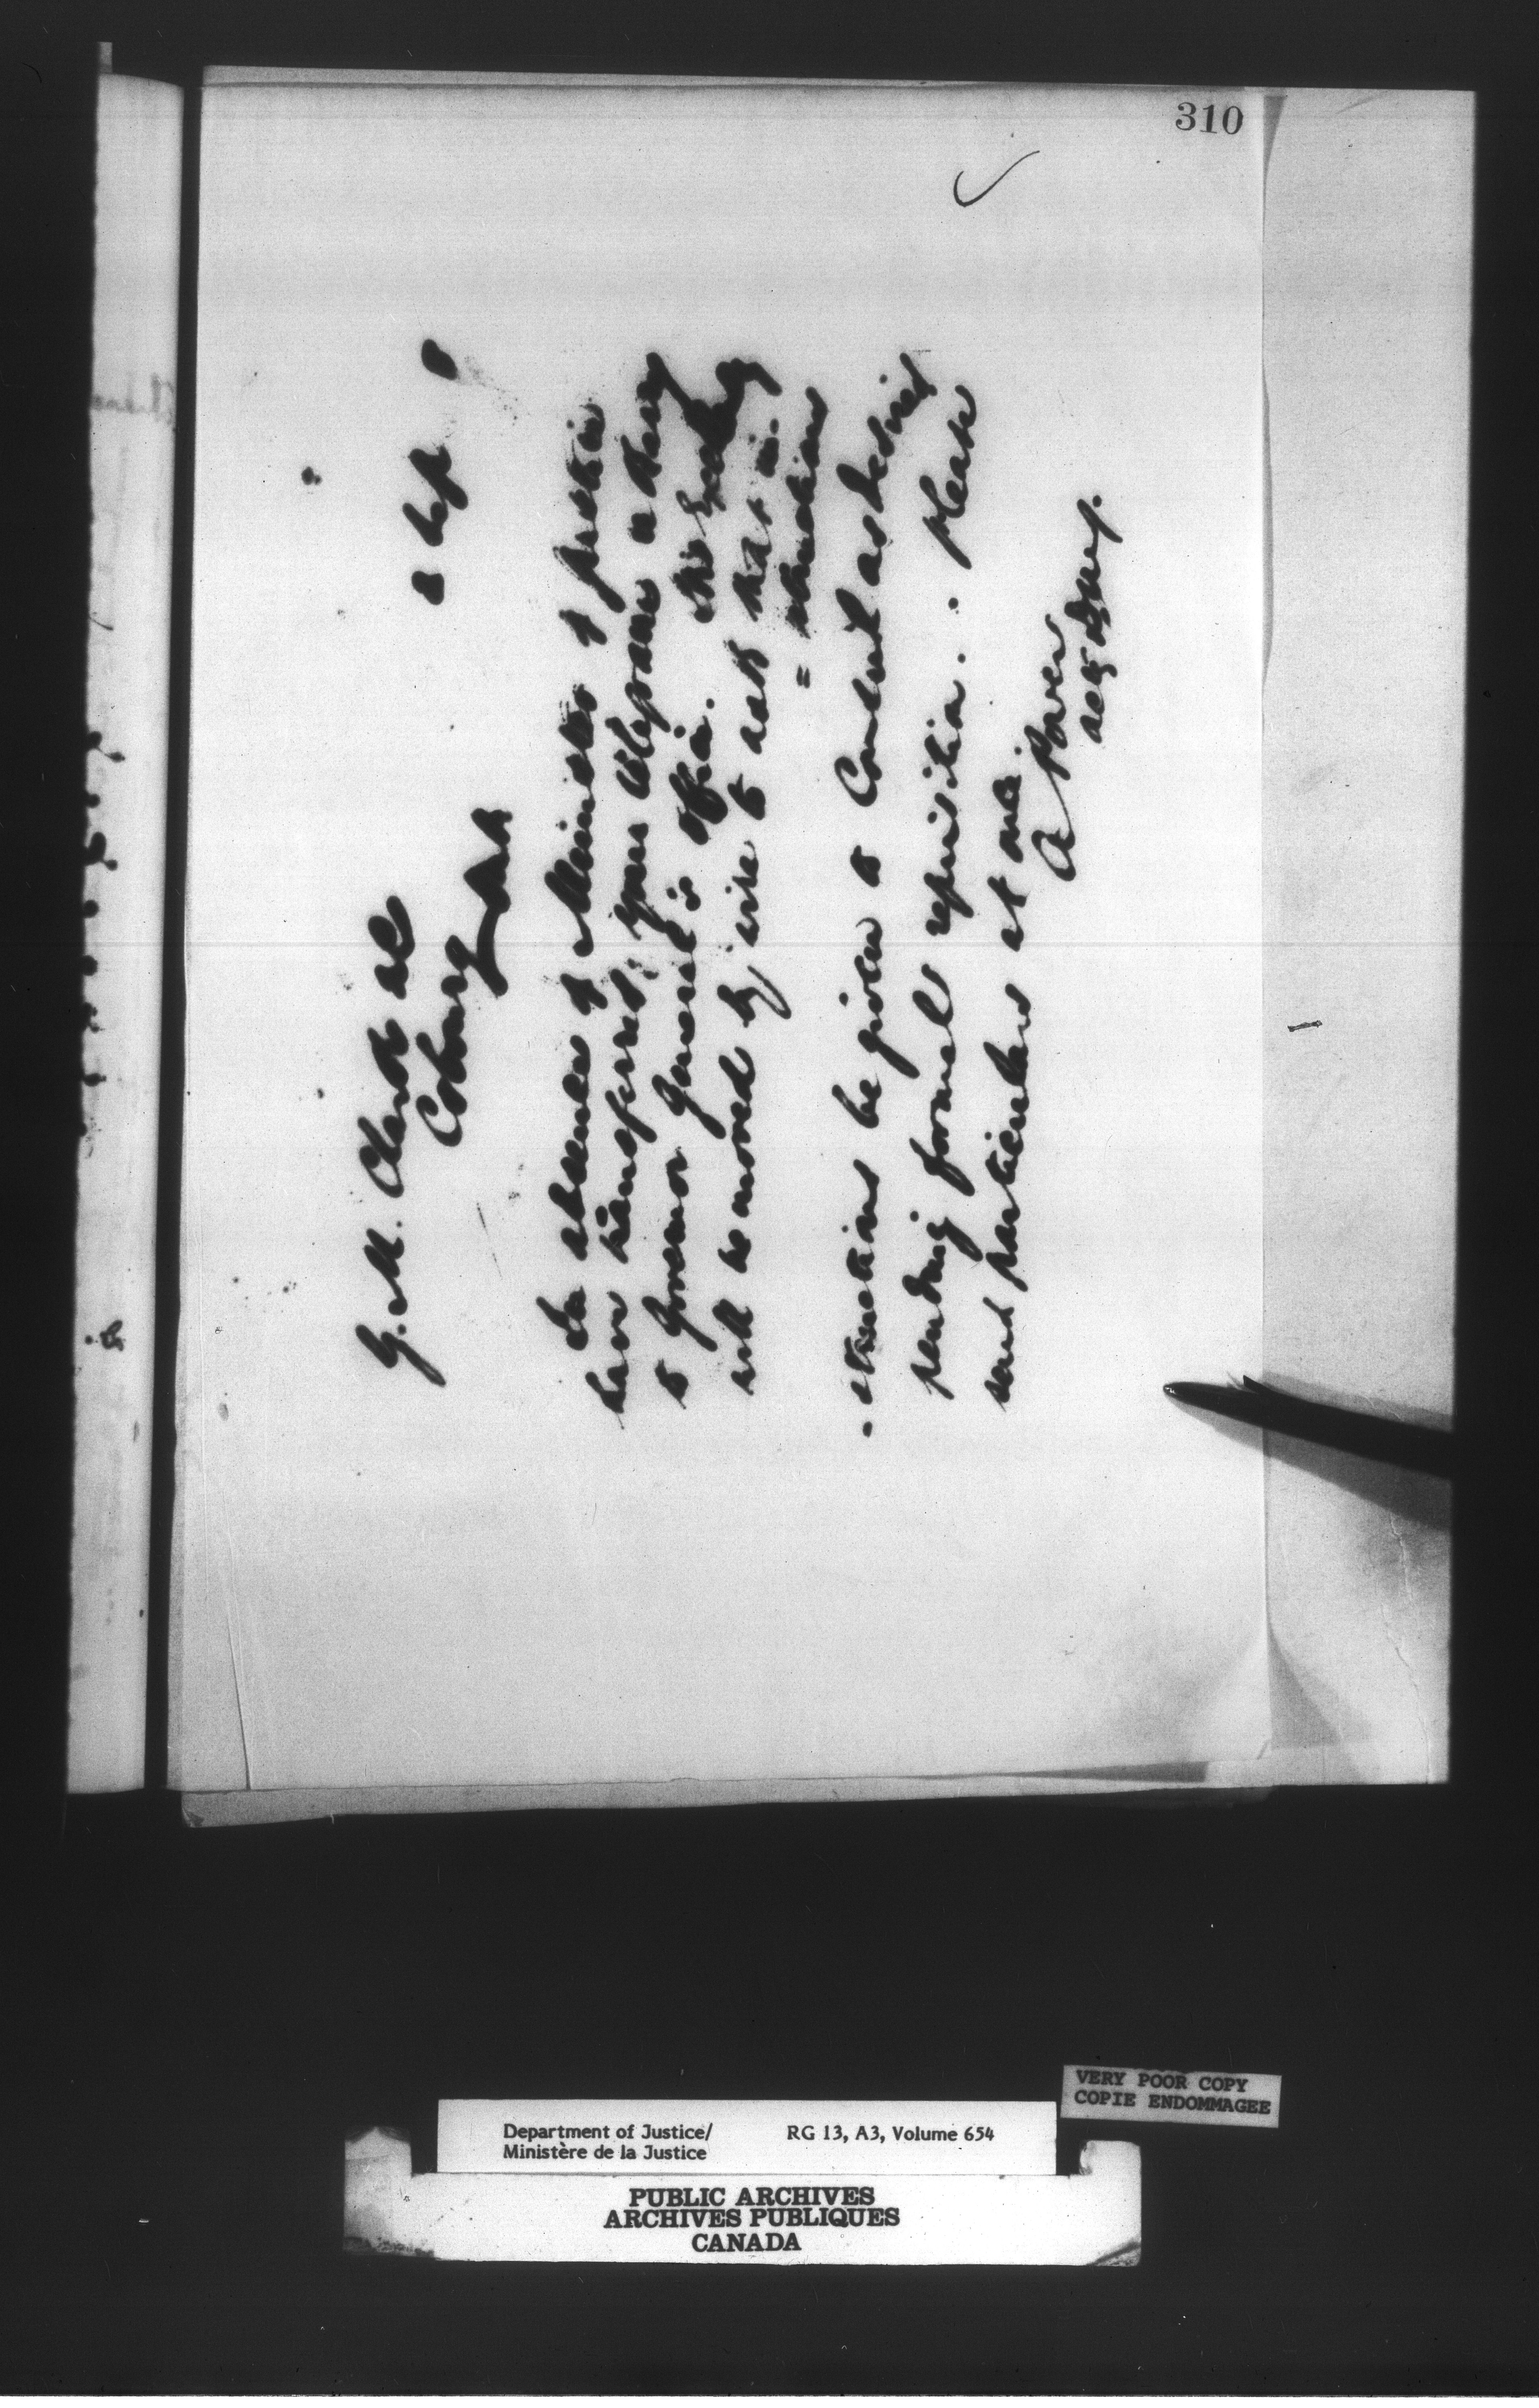 310
8 Sep
G. M. Clark
Cobourg Ont
In absence of Minister of Justice
have transferred your telegram
to Governor General's Office. His Excellency
will be moved by wire to ask that in-
= structions
- structions be given to Consul as desired
pending formal requisition. Please
send particulars at once.
A Power
actg
VERY POOR COPY
COPIE ENDOMMAGEE
Department of Justice/
Ministère de la Justice
RG 13, A3, Volume 654
PUBLIC ARCHIVES
ARCHIVES PUBLIQUES
CANADA